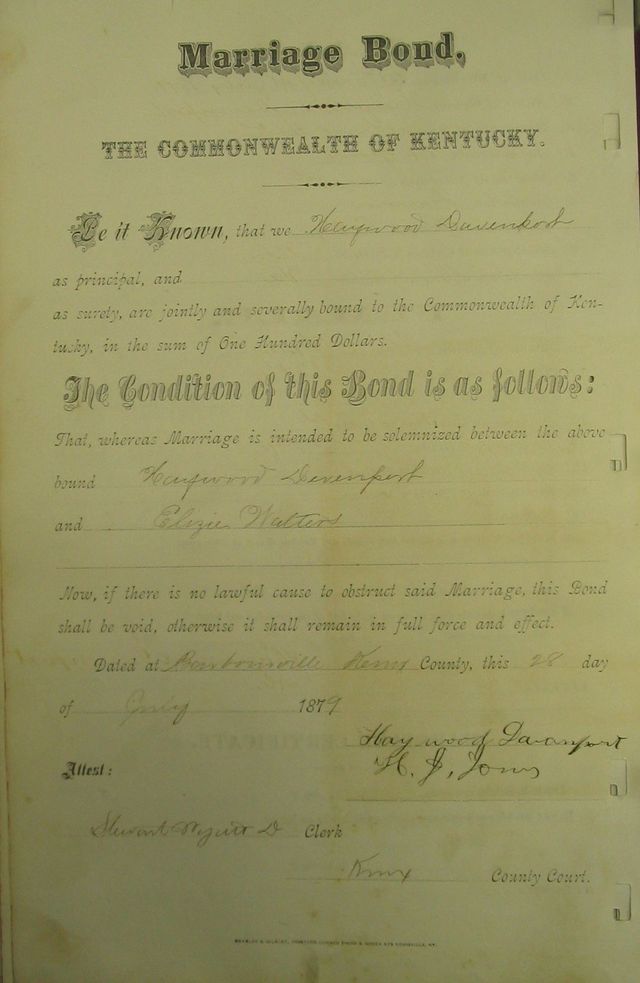 Marriage Bond.
THE COMMONWEALTH OF KENTUCKY.
Be it Known, that we Haywood Davenport
as principal, and
as surety, are jointly and severally bound to the Commonwealth of Ken-
tucky, in the sum of One Hundred Dollars.
The Condition of this Bond is as follows:
That, whereas Marriage is intended to be solemnized between the above
bound Haywood Davenport
and Elizie Watters
Now, if there is no lawful cause to obstruct said Marriage, this Bond
shall be void, otherwise it shall remain in full force and effect.
Dated at Knox County, this 28 day
of July 1879
Haywood Davenport
Attest: H. J. Jones
Clerk
Knox County Court.